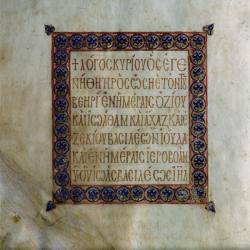 +ΛΟΓΟΣΚΥΡΙΟΥΟΣΕΓΕ
ΝΗΘΗΠΡΟΣΩΣΗΕΤΟΝΤΥ
ΒΕΗΡΓΕΝΗΜΕΡΑΙΣΟΖΙΟΥ
ΚΑΙΙΩΑΘΑΜΚΑΙΑΧΑΖΚΑΙΕ
ΖΕΚΙΟΥΒΑΣΙΛΕΩΝΙΟΥΔΑ
ΚΑΙΕΝΗΜΕΡΑΙΣΙΕΡΟΒΟΑΜ
ΤΟΥΙΩΑΣΒΑΣΙΛΕΩΣΙΗΛ